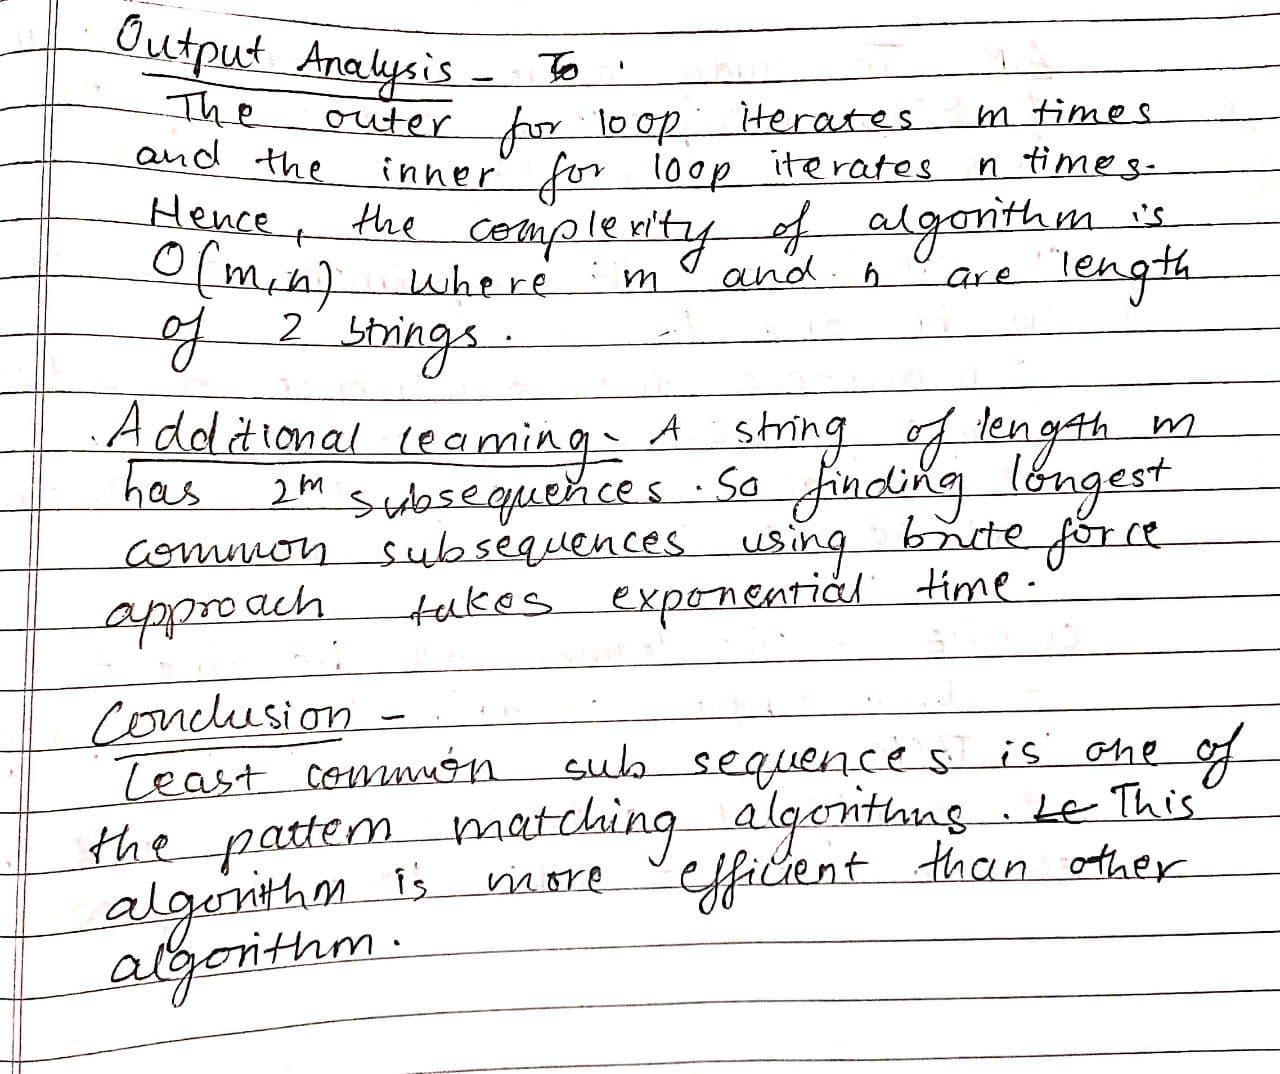 Output Analysis - To
The outer for loop iterates m times
and the inner for loop iterates n times.
Hence, the complexity of algorithm is
O(m,n) where m and n are length
of 2 strings.
Additional learning - A string of length m
has 2^m subsequences. So finding longest
common subsequences using brute force
approach takes exponential time.
Conclusion -
Least common sub sequences is one of
the pattern matching algorithms. Le This
algorithm is more efficient than other
algorithm.